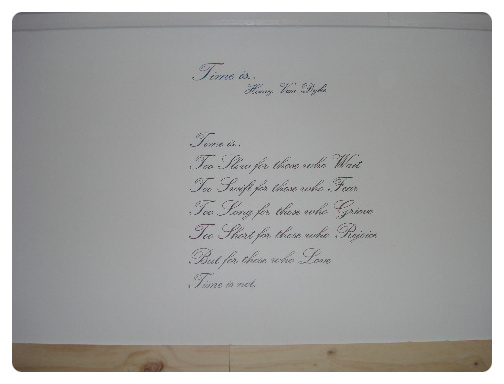 Time is.
Henry Van Dyke
Time is..
Too Slow for those who Wait
Too Swift for those who Fear
Too Long for those who Grieve
Too Short for those who Rejoice
But for those who Love
Time is not.